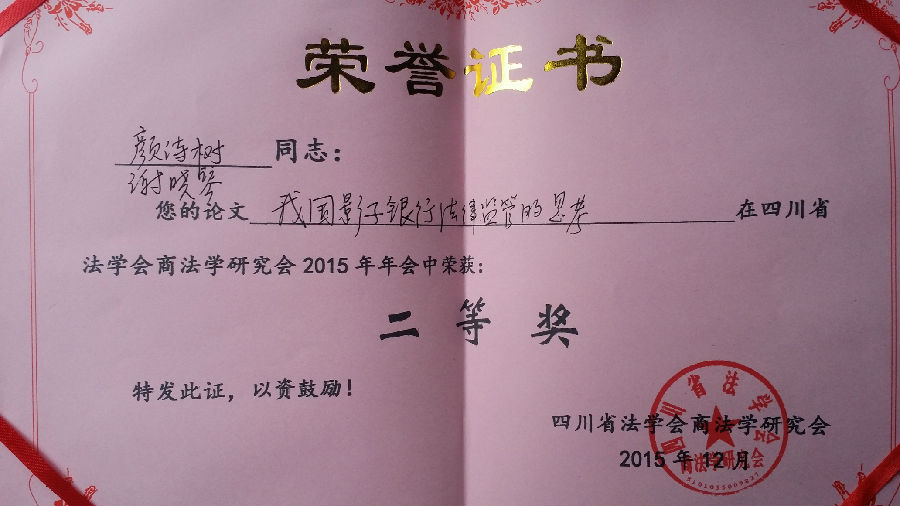 荣誉证书
颜诗树 同志：
谢晓琴
您的论文 我国影子银行法律监管的思考 在四川省
法学会商法学研究会2015年年会中荣获：
二等奖
特发此证，以资鼓励！
四川省法学会商法学研究会
2015年12月
四川省法学会
商法学研究会
5101055009227